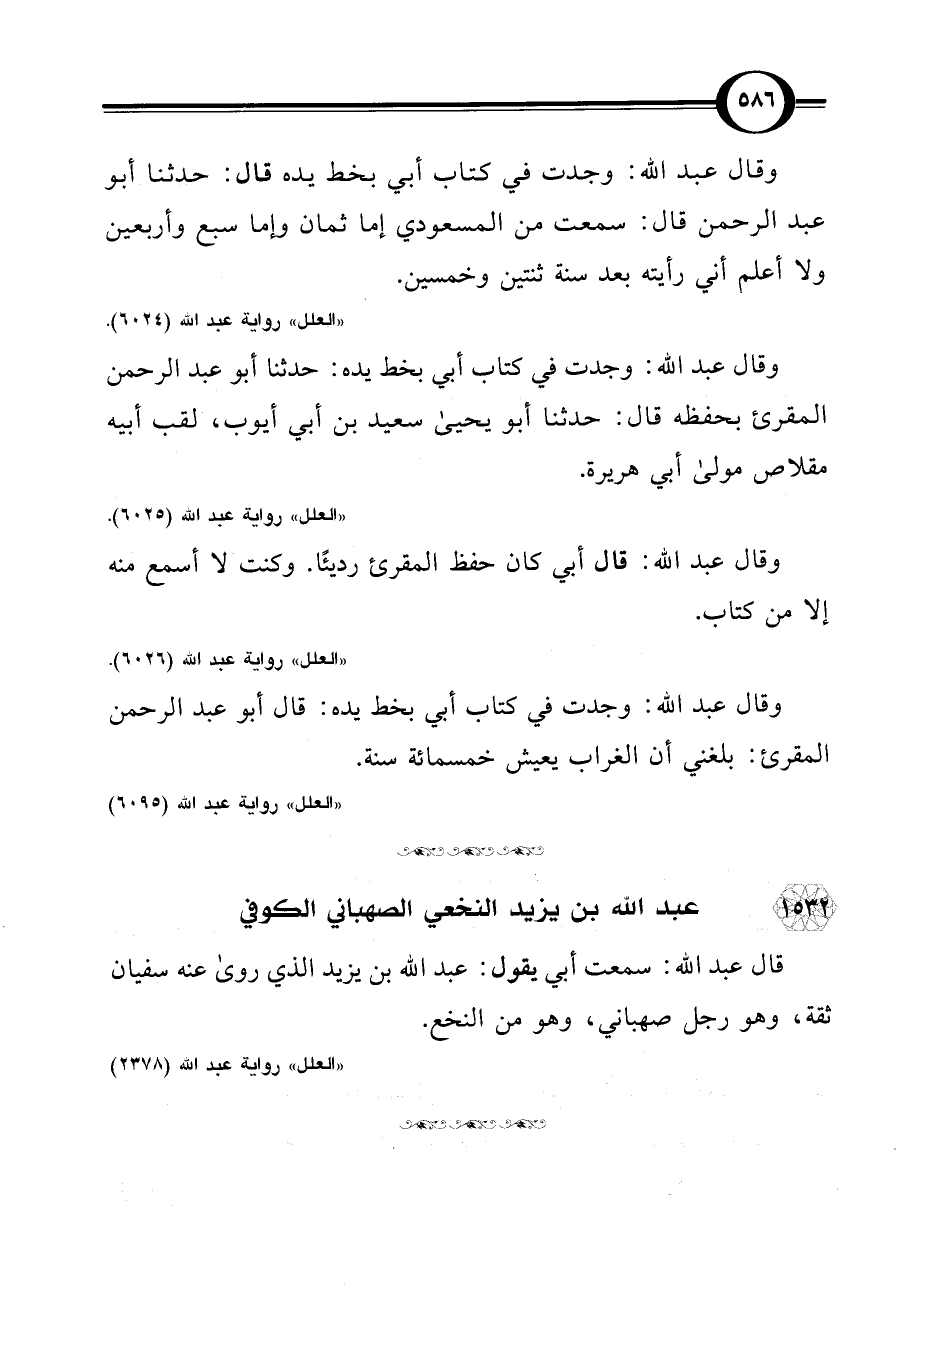 ٥٨٦
وقال عبد الله: وجدت في كتاب أبي بخط يده قال: حدثنا أبو
عبد الرحمن قال: سمعت من المسعودي إما ثمان وإما سبع وأربعين
ولا أعلم أني رأيته بعد سنة ثنتين وخمسين.
«العلل» رواية عبد الله (٦٠٢٤).
وقال عبد الله: وجدت في كتاب أبي بخط يده: حدثنا أبو عبد الرحمن
المقرئ بحفظه قال: حدثنا أبو يحيىٰ سعيد بن أبي أيوب، لقب أبيه
مقلاص مولىٰ أبي هريرة.
«العلل» رواية عبد الله (٦٠٢٥).
وقال عبد الله: قال أبي كان حفظ المقرئ رديئًا. وكنت لا أسمع منه
إلا من كتاب.
«العلل» رواية عبد الله (٦٠٢٦).
وقال عبد الله: وجدت في كتاب أبي بخط يده: قال أبو عبد الرحمن
المقرئ: بلغني أن الغراب يعيش خمسمائة سنة.
«العلل» رواية عبد الله (٦٠٩٥)
١٥٣٢ عبد الله بن يزيد النخعي الصهباني الكوفي
قال عبد الله: سمعت أبي يقول: عبد الله بن يزيد الذي روىٰ عنه سفيان
ثقة، وهو رجل صهباني، وهو من النخع.
«العلل» رواية عبد الله (٢٣٧٨)